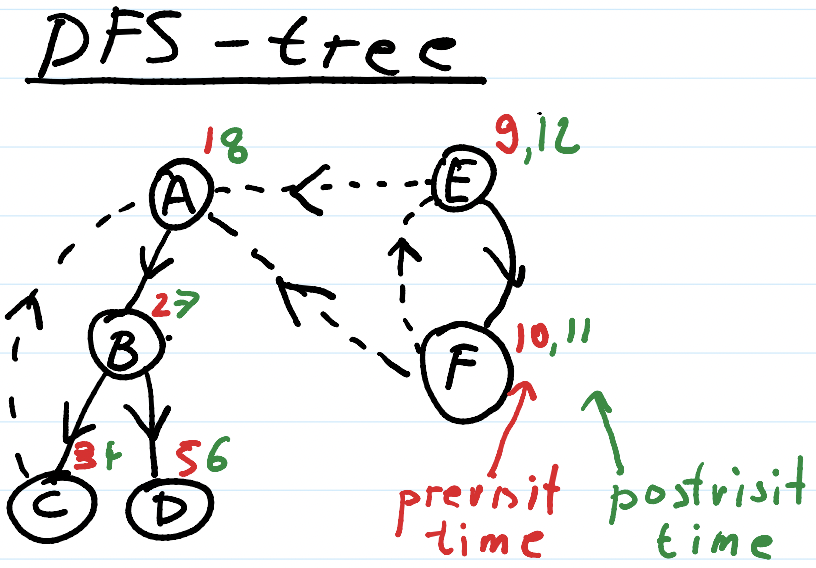 DFS - tree
18
9,12
A
E
27
10,11
B
F
3 4
56
C
D
previsit
time
postvisit
time